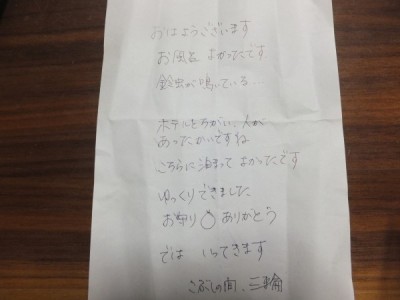 おはようございます
お風呂 よかったです
鈴虫が鳴いている…
ホテルとちがい、人が
あったかいですね
こちらに泊まって よかったです
ゆっくりできました
お守り ありがとう
では いってきます
こぶしの間、三輪